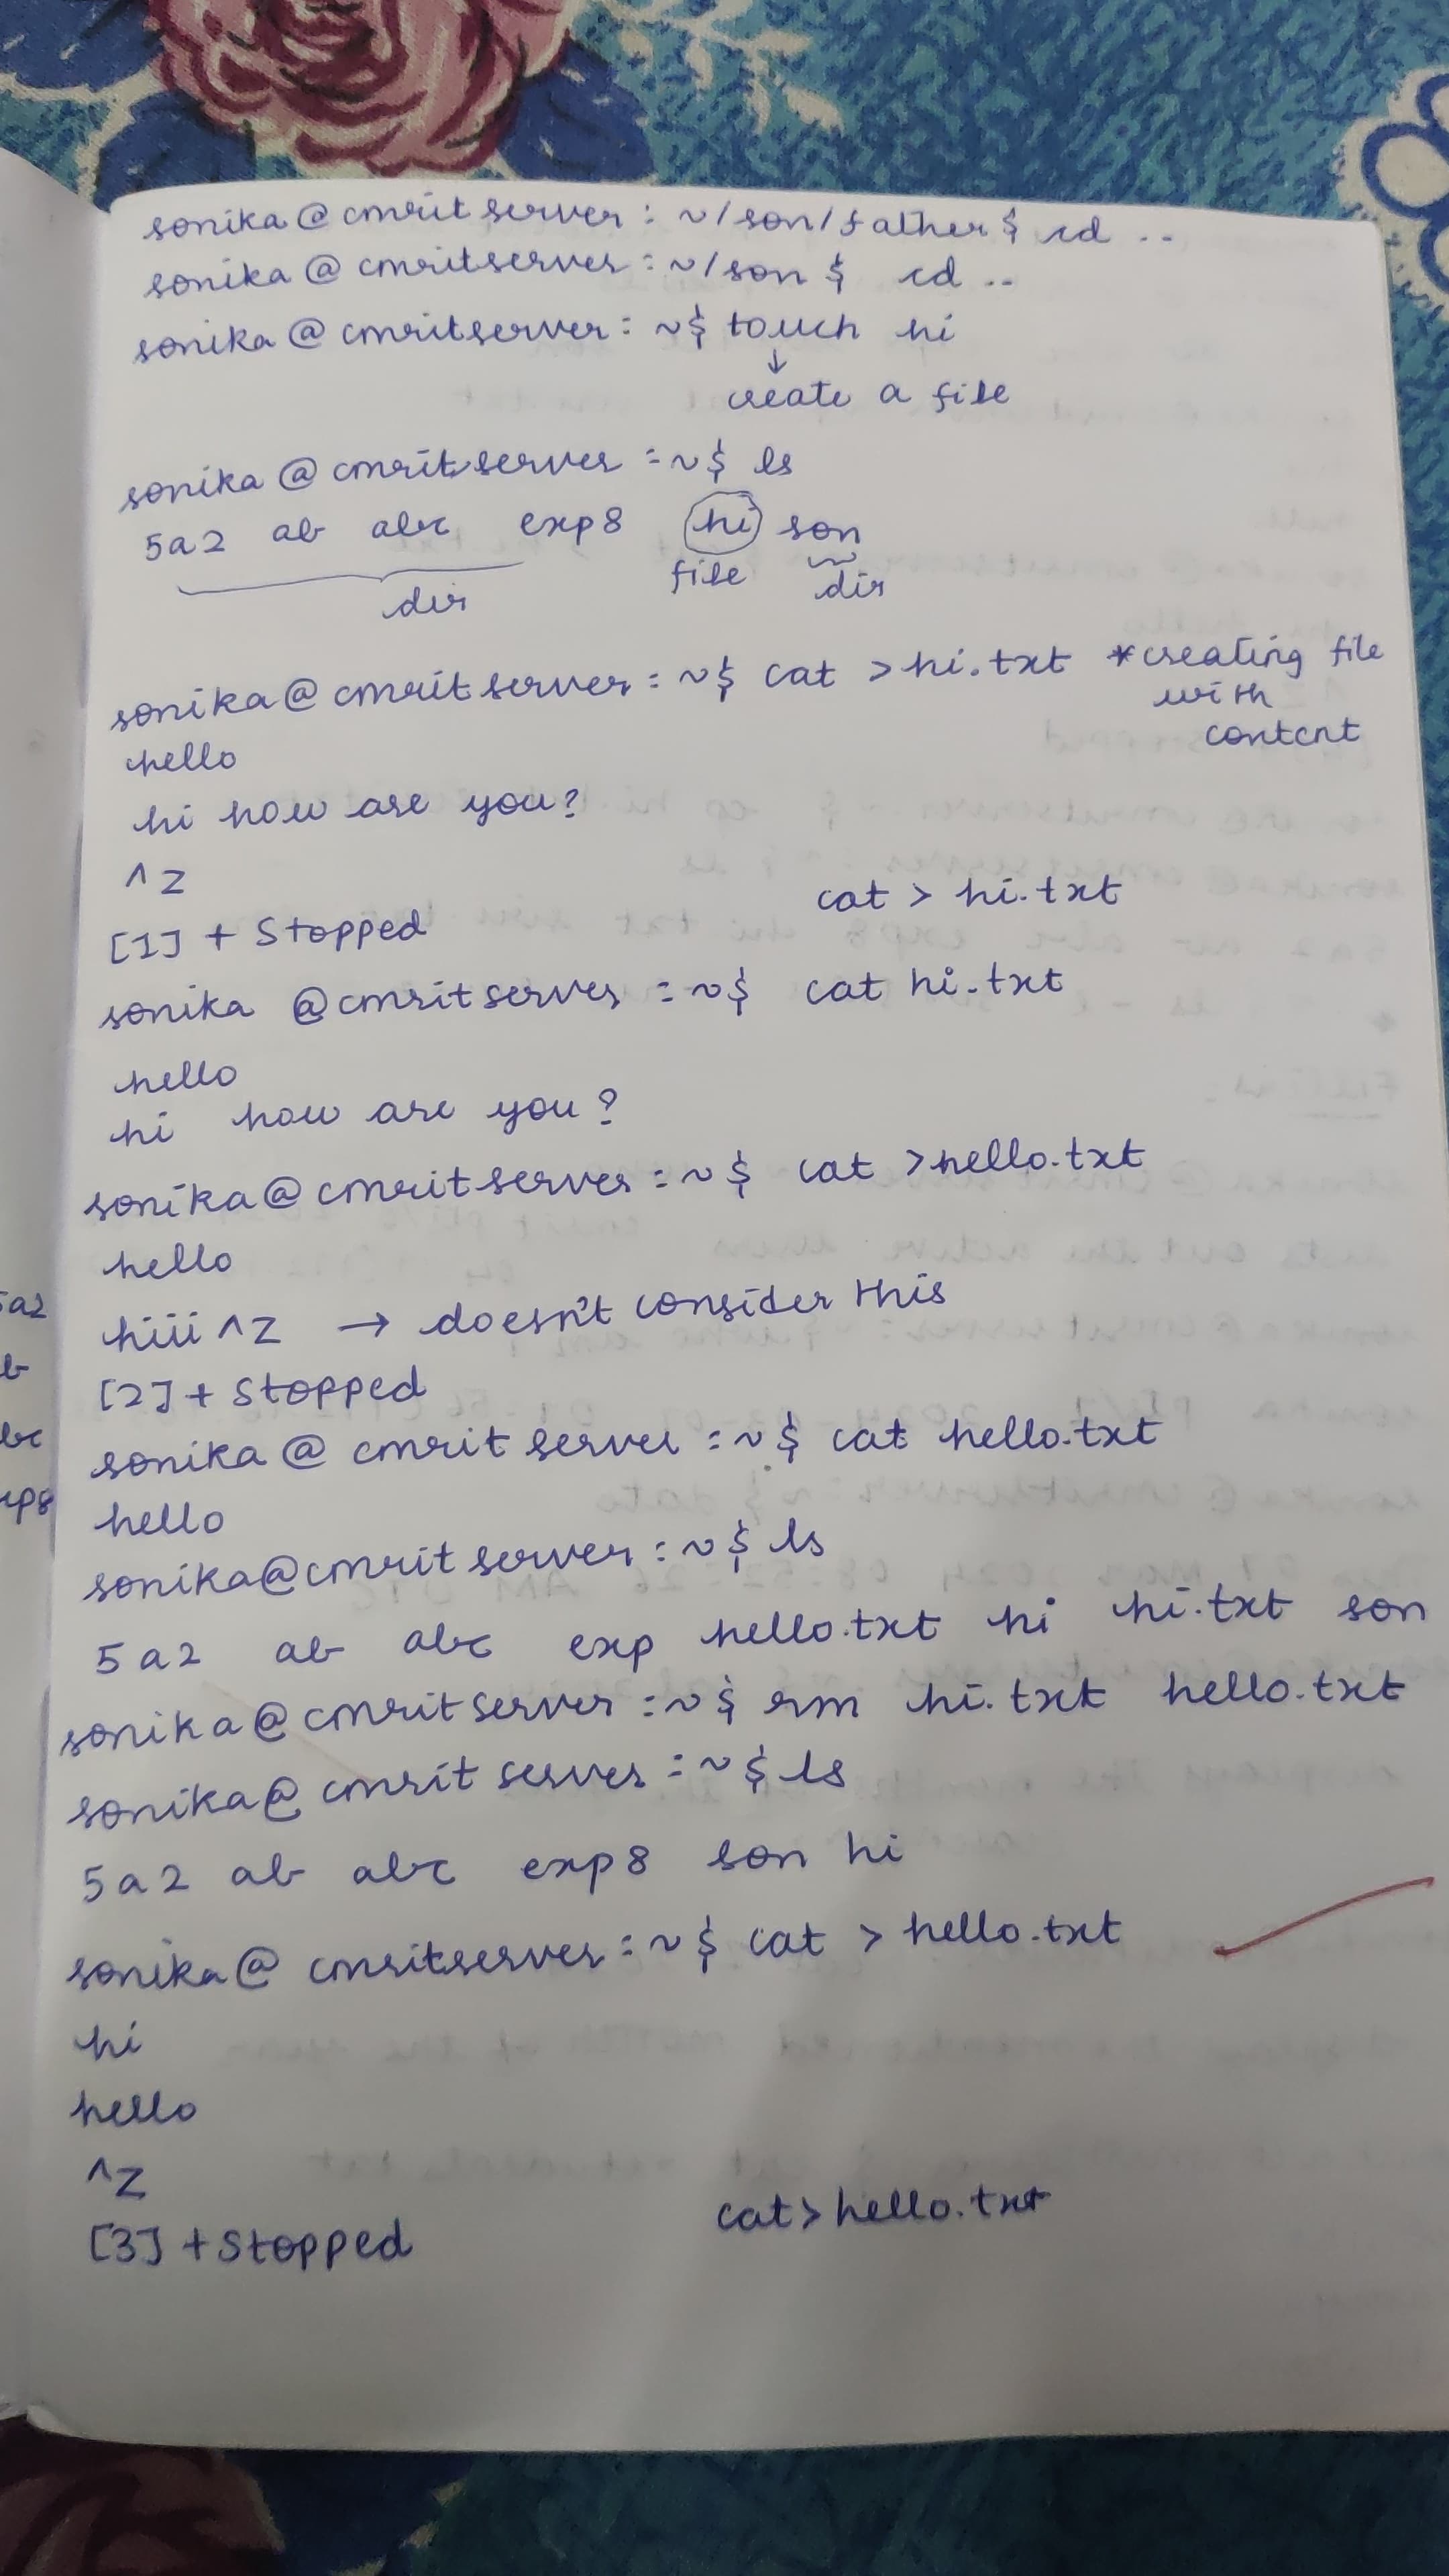 sonika@cmritserver:~/son/father$ cd ..
sonika@cmritserver:~/son$ cd ..
sonika@cmritserver:~$ touch hi
↓
create a file
sonika@cmritserver:~$ ls
5a2 ab abc exp8 hi son
dir file dir
sonika@cmritserver:~$ cat >hi.txt *creating file
with
content
hello
hi how are you?
^Z
[1]+ Stopped cat > hi.txt
sonika@cmritserver:~$ cat hi.txt
hello
hi how are you?
sonika@cmritserver:~$ cat >hello.txt
hello
hiii^Z → doesn't consider this
[2]+ Stopped
sonika@cmritserver:~$ cat hello.txt
hello
sonika@cmritserver:~$ ls
5a2 ab abc exp hello.txt hi hi.txt son
sonika@cmritserver:~$ rm hi.txt hello.txt
sonika@cmritserver:~$ ls
5a2 ab abc exp8 son hi
sonika@cmritserver:~$ cat > hello.txt
hi
hello
^Z
[3]+Stopped cat>hello.txt